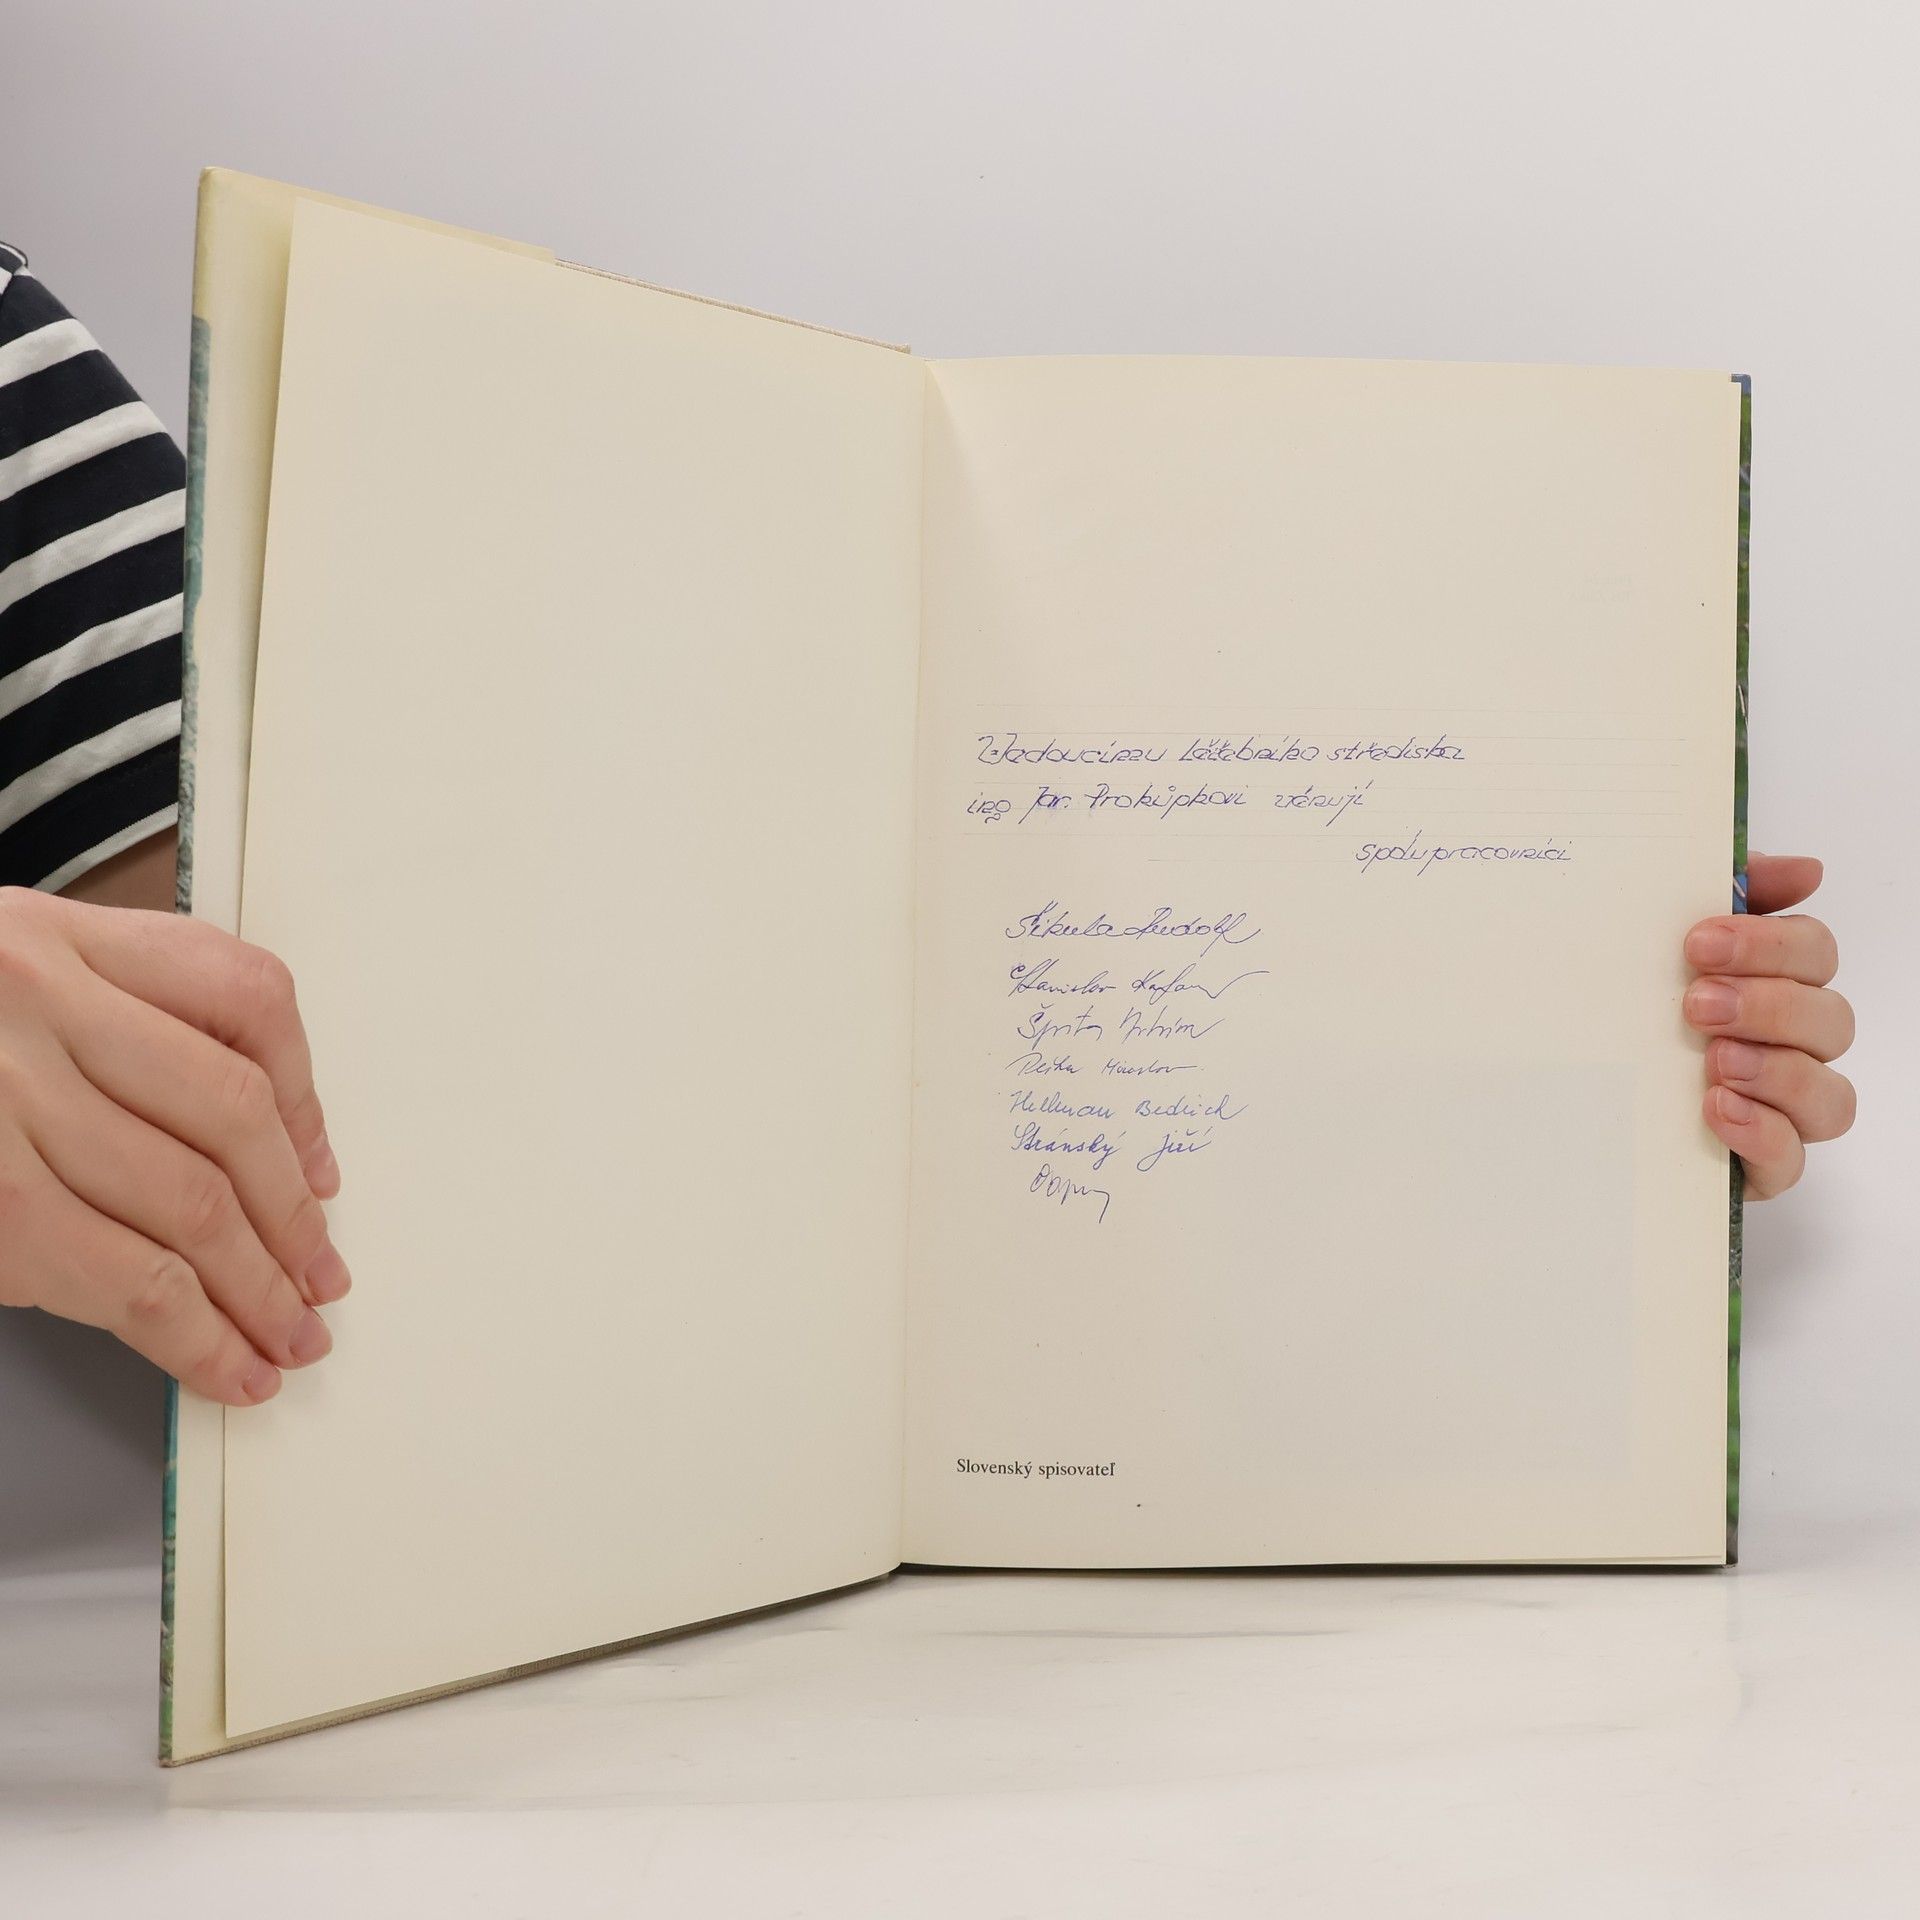 Vedoucímu léčebního střediska
ing Jar. Prokůpkovi věnují
spolupracovníci
Šikula Rudolf
Stanislav
Miroslav
Hellman Bedrich
Stránský Jiří
Slovenský spisovateľ